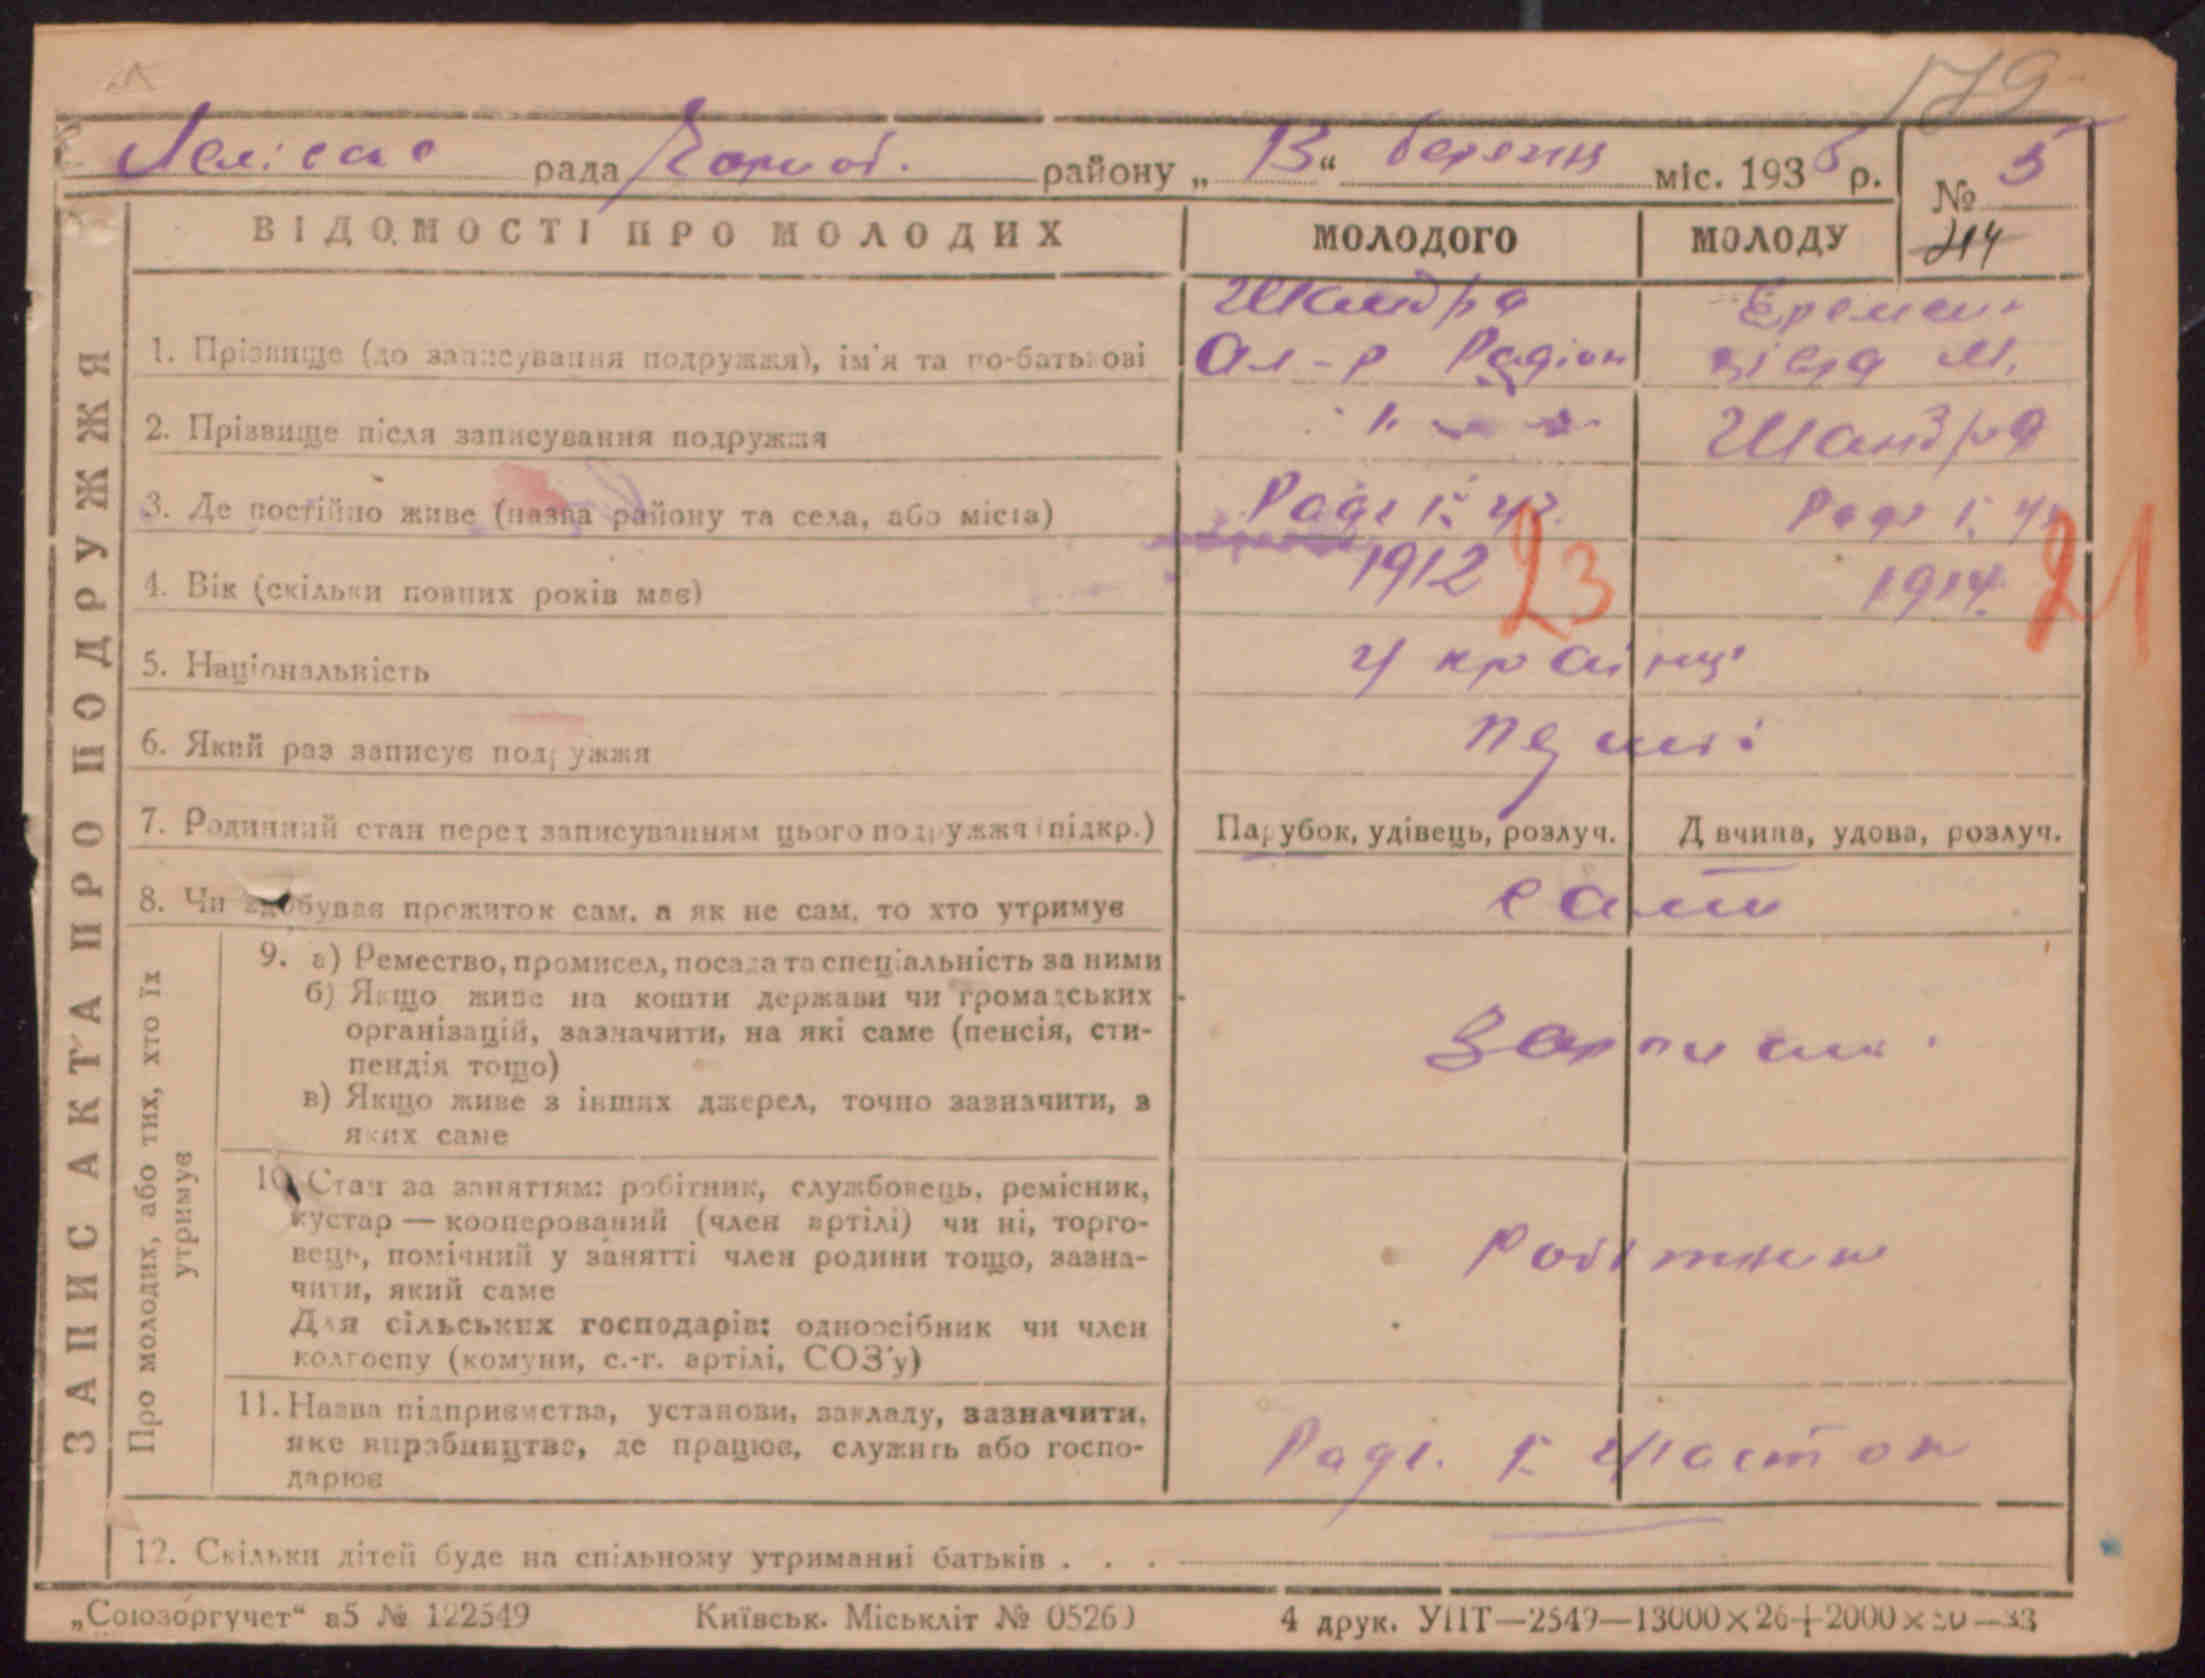 179
рада району „13“ березня міс. 1935 р.
№ 5
214
ВІДОМОСТІ ПРО МОЛОДИХ МОЛОДОГО МОЛОДУ
ЗАПИС АКТА ПРО ПОДРУЖЖЯ
1. Прізвище (до записування подружжя), ім'я та по-батькові
Шкандра
Ол-р Радіон
Еремен
М.
2. Прізвище після записування подружжя Шкандра
3. Де постійно живе (назва району та села, або міста)
4. Вік (скільки повних років має) 1912 23 1914 21
5. Національність українці
6. Який раз записує подружжя перші
7. Родинний стан перед записуванням цього подружжя (підкр.) Парубок, удівець, розлуч. Дівчина, удова, розлуч.
8. Чи здобував прожиток сам, а як не сам, то хто утримує сами
Про молодих, або тих, хто їх
утримує
9. а) Ремество, промисел, посада та спеціальність за ними
б) Якщо живе на кошти держави чи громадських
організацій, зазначити, на які саме (пенсія, сти-
пендія тощо)
в) Якщо живе з інших джерел, точно зазначити, з
яких саме
10. Стан за заняттям: робітник, службовець, ремісник,
кустар — кооперований (член артілі) чи ні, торго-
вець, помічний у занятті член родини тощо, зазна-
чити, який саме
Для сільських господарів: одноосібник чи член
колгоспу (комуни, с.-г. артілі, СОЗ'у)
робітники
11. Назва підприємства, установи, закладу, зазначити,
яке виробництво, де працює, служить або госпо-
дарює
12. Скільки дітей буде на спільному утриманні батьків . . .
„Союзоргучет“ а5 № 122549 Київськ. Міськліт № 0526 4 друк. УПТ—2549—13000×26+2000×20—33